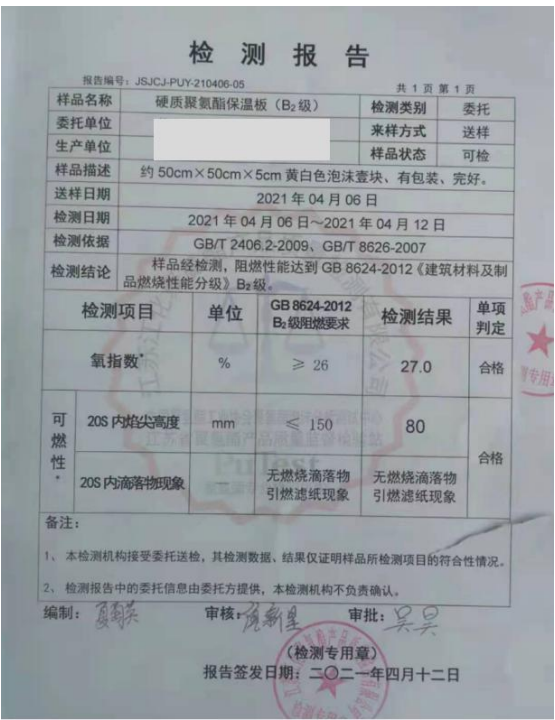 检测报告
报告编号：JSJCJ-PUY-210406-05
共 1 页 第 1 页
样品名称 硬质聚氨酯保温板（B₂级） 检测类别 委托
委托单位 来样方式 送样
生产单位 样品状态 可检
样品描述 约 50cm×50cm×5cm 黄白色泡沫壹块、有包装、完好。
送样日期 2021 年 04 月 06 日
检测日期 2021 年 04 月 06 日～2021 年 04 月 12 日
检测依据 GB/T 2406.2-2009、GB/T 8626-2007
检测结论 样品经检测，阻燃性能达到 GB 8624-2012《建筑材料及制
品燃烧性能分级》B₂级。
检测项目 单位 GB 8624-2012
B₂级阻燃要求 检测结果 单项
判定
氧指数* % ≥ 26 27.0 合格
可燃性* 20S 内焰尖高度 mm ≤ 150 80 合格
20S 内滴落物现象 — 无燃烧滴落物
引燃滤纸现象 无燃烧滴落物
引燃滤纸现象
备注：
1、本检测机构接受委托送检，其检测数据、结果仅证明样品所检测项目的符合性情况。
2、检测报告中的委托信息由委托方提供，本检测机构不负责确认。
编制： 审核： 审批：吴昊
（检测专用章）
报告签发日期：二〇二一年四月十二日